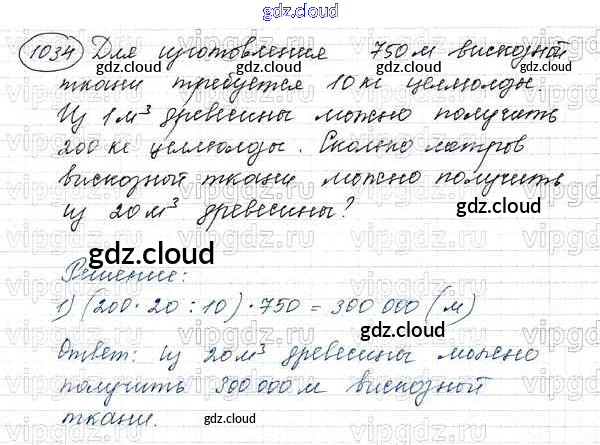 gdz.cloud
1034 Для изготовления 750 м вискозной
ткани требуется 10 кг целлюлозы.
Из 1 м³ древесины можно получить
200 кг целлюлозы. Сколько метров
вискозной ткани можно получить
из 20 м³ древесины?
gdz.cloud
Решение:
1) (200 · 20 : 10) · 750 = 300 000 (м)
Ответ: из 20 м³ древесины можно
получить 300 000 м вискозной
ткани.
gdz.cloud
vipgdz.ru